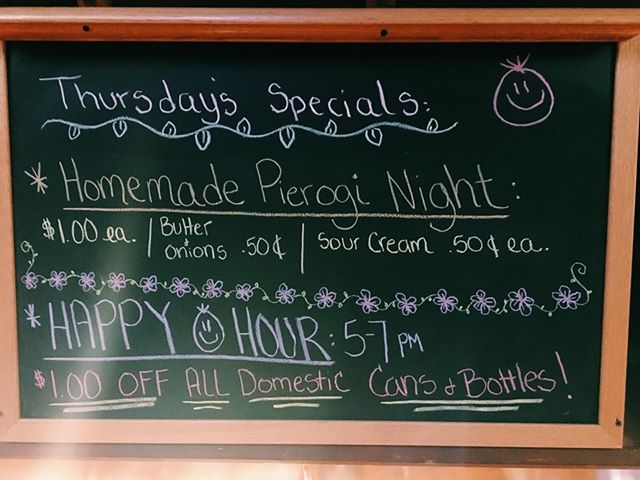 Thursday's Specials:
* Homemade Pierogi Night:
$1.00 ea. | Butter & onions .50¢ | Sour Cream .50¢ ea.
* HAPPY HOUR: 5-7 PM
$1.00 OFF ALL Domestic Cans & Bottles!